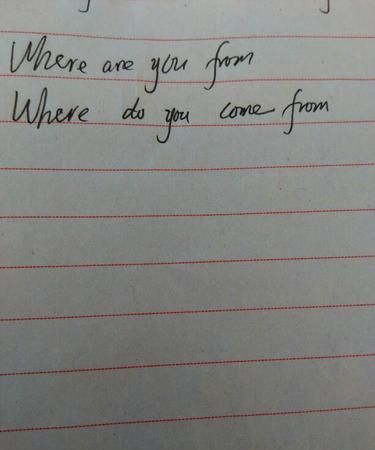 Where are you from
Where do you come from